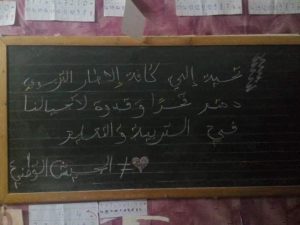 تحية إلى كافة الإطار التربوي
دمتم فخرًا وقدوة لأجيالنا
في التربية والتعليم
الجيش الوطني